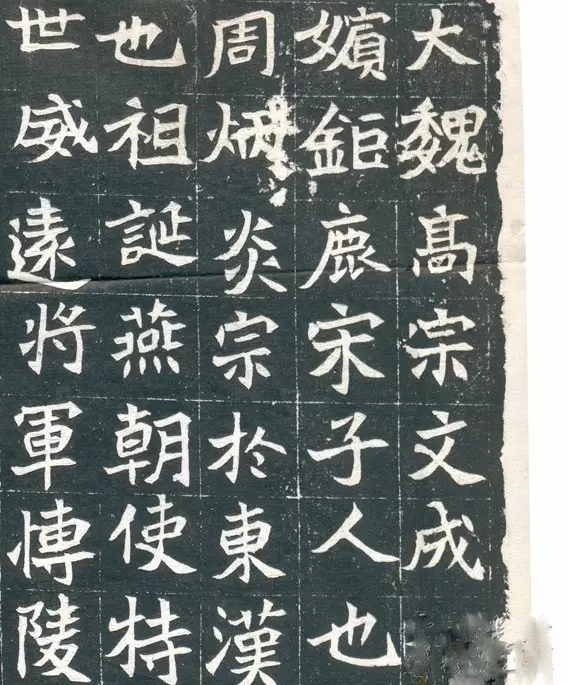 大魏髙宗文成
嬪鉅鹿宋子人也
周炳炎宗於東漢
也祖誕燕朝使特
世威遠将軍愽陵